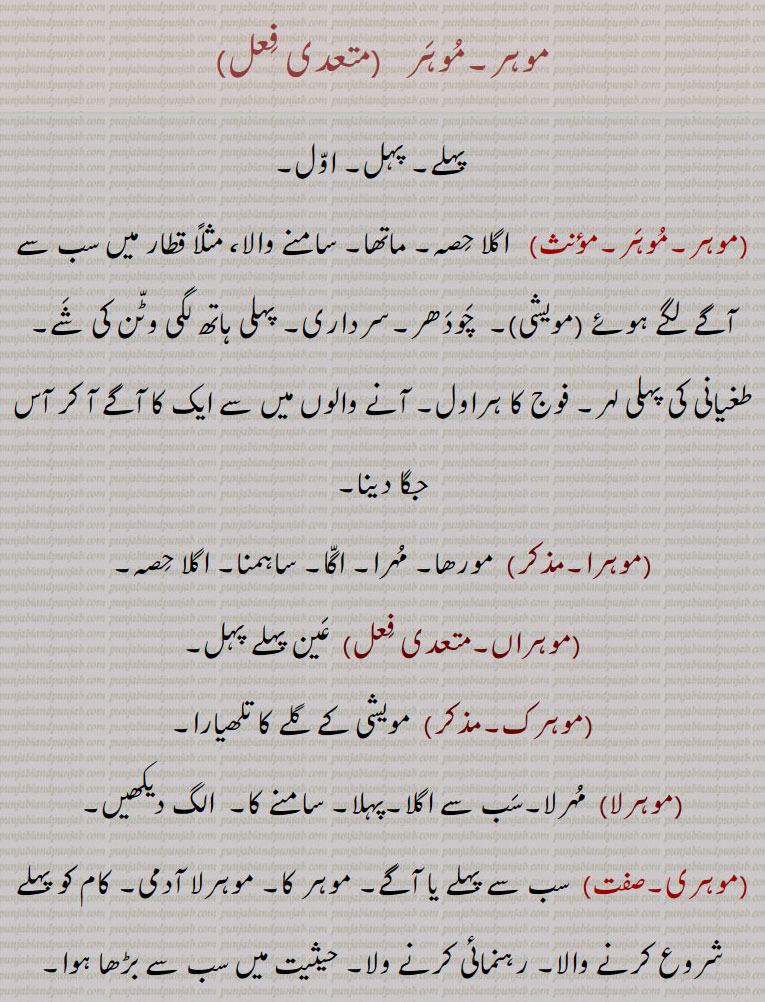 موہر۔مُوہَر (متعدی فِعل)
پہلے۔ پہل۔ اوّل۔
(موہر۔مُوہَر۔مؤنث) اگلا حِصہ۔ ماتھا۔ سامنے والا، مثلًا قطار میں سب سے
آگے لگے ہوئے (مویشی)۔ چَودَھر۔سرداری۔ پہلی ہاتھ لگی وٹّن کی شَے۔
طغیانی کی پہلی لہر۔ فوج کا ہراول۔ آنے والوں میں سے ایک کا آگے آ کر آس
جگا دینا۔
(موہرا۔مذکر) مورھا۔ مُہرا۔ اگّا۔ ساہمنا۔ اگلا حِصہ۔
(موہراں۔متعدی فِعل) عَین پہلے پہل۔
(موہرک۔مذکر) مویشی کے گلے کا تلھیارا۔
(موہرلا) مُہرلا۔سَب سے اگلا۔پہلا۔ سامنے کا۔ الگ دیکھیں۔
(موہری۔صفت) سب سے پہلے یا آگے۔ موہر کا۔ موہرلا آدمی۔ کام کو پہلے
شروع کرنے والا۔ رہنمائی کرنے ولا۔ حیثیت میں سب سے بڑھا ہوا۔
punjabiandpunjab.com